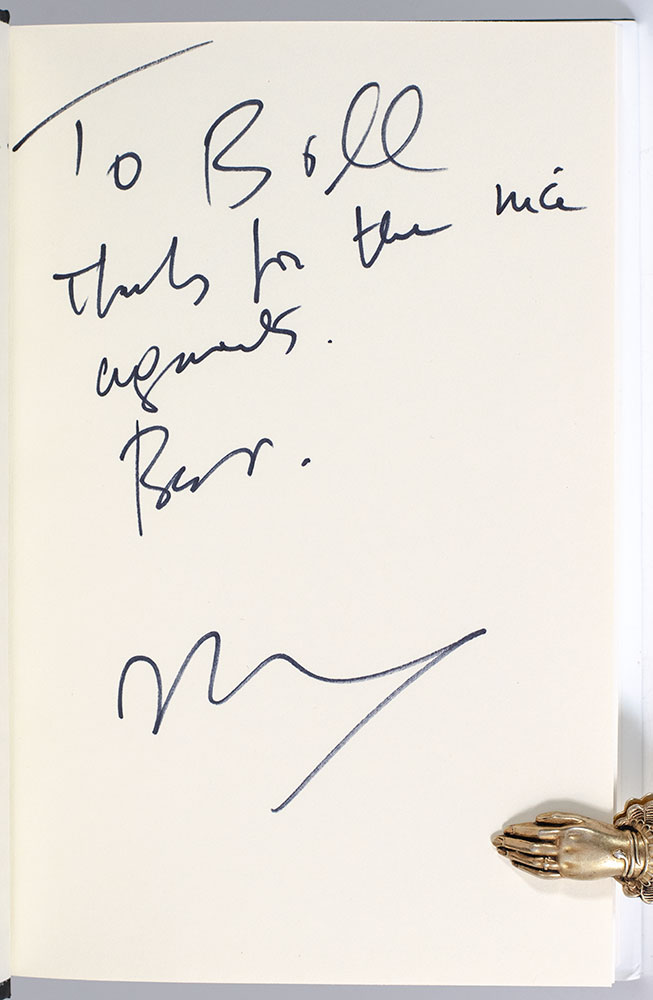 To Bill
Thanks for the nice
arguments.
Best.